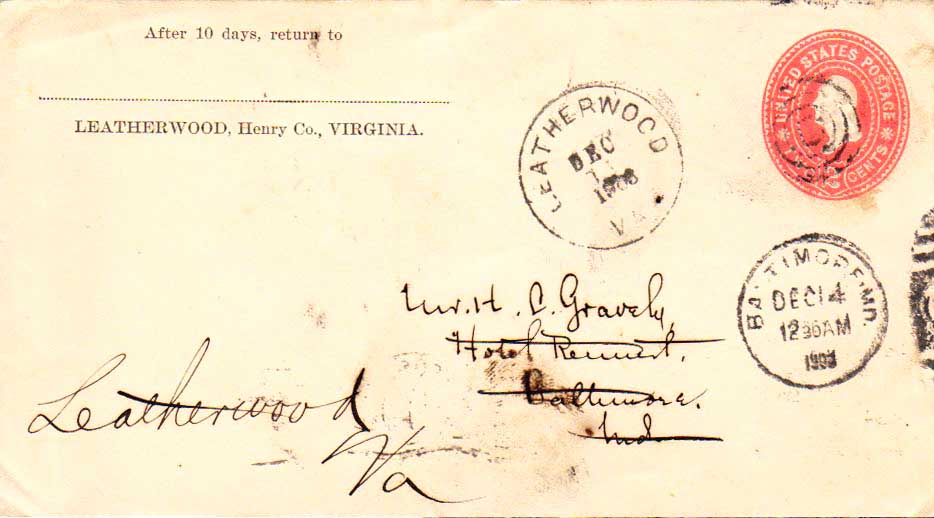 After 10 days, return to
LEATHERWOOD, Henry Co., VIRGINIA.
LEATHERWOOD
DEC
VA.
UNITED STATES POSTAGE
2 CENTS
BALTIMORE, MD.
DEC 14
12 30 AM
1903
Mr. H. C. Gravely,
Hotel Rennert,
Baltimore,
Md
Leatherwood
Va